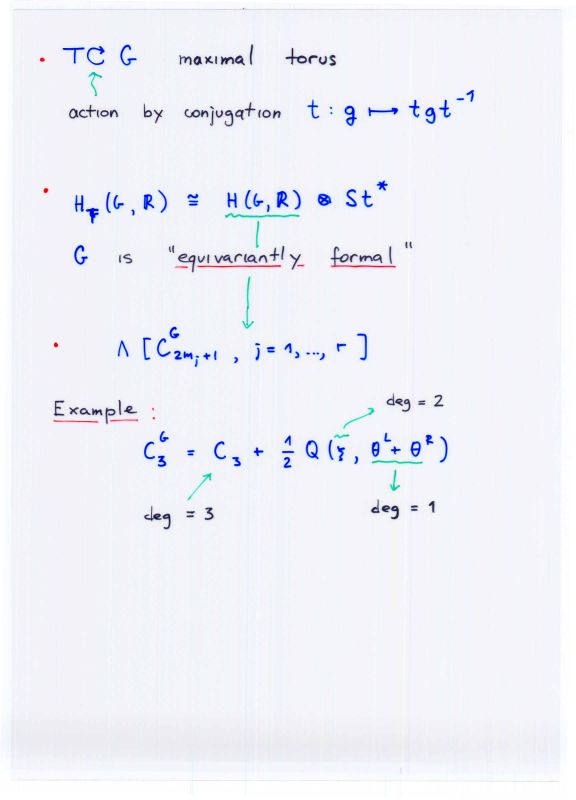 • T ⟳ G maximal torus
action by conjugation t : g ↦ tgt⁻¹
• H_T (G, ℝ) ≅ H(G, ℝ) ⊗ St*
G is "equivariantly formal"
• Λ [C^G_{2m_j+1}, j = 1, ..., r ]
Example :
deg = 2
C₃^G = C₃ + ½ Q (ξ, θ^L + θ^R)
deg = 3 deg = 1